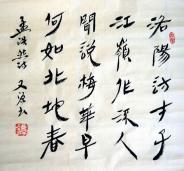 洛陽訪才子
江嶺作流人
聞說梅華早
何如北地春
孟浩然詩